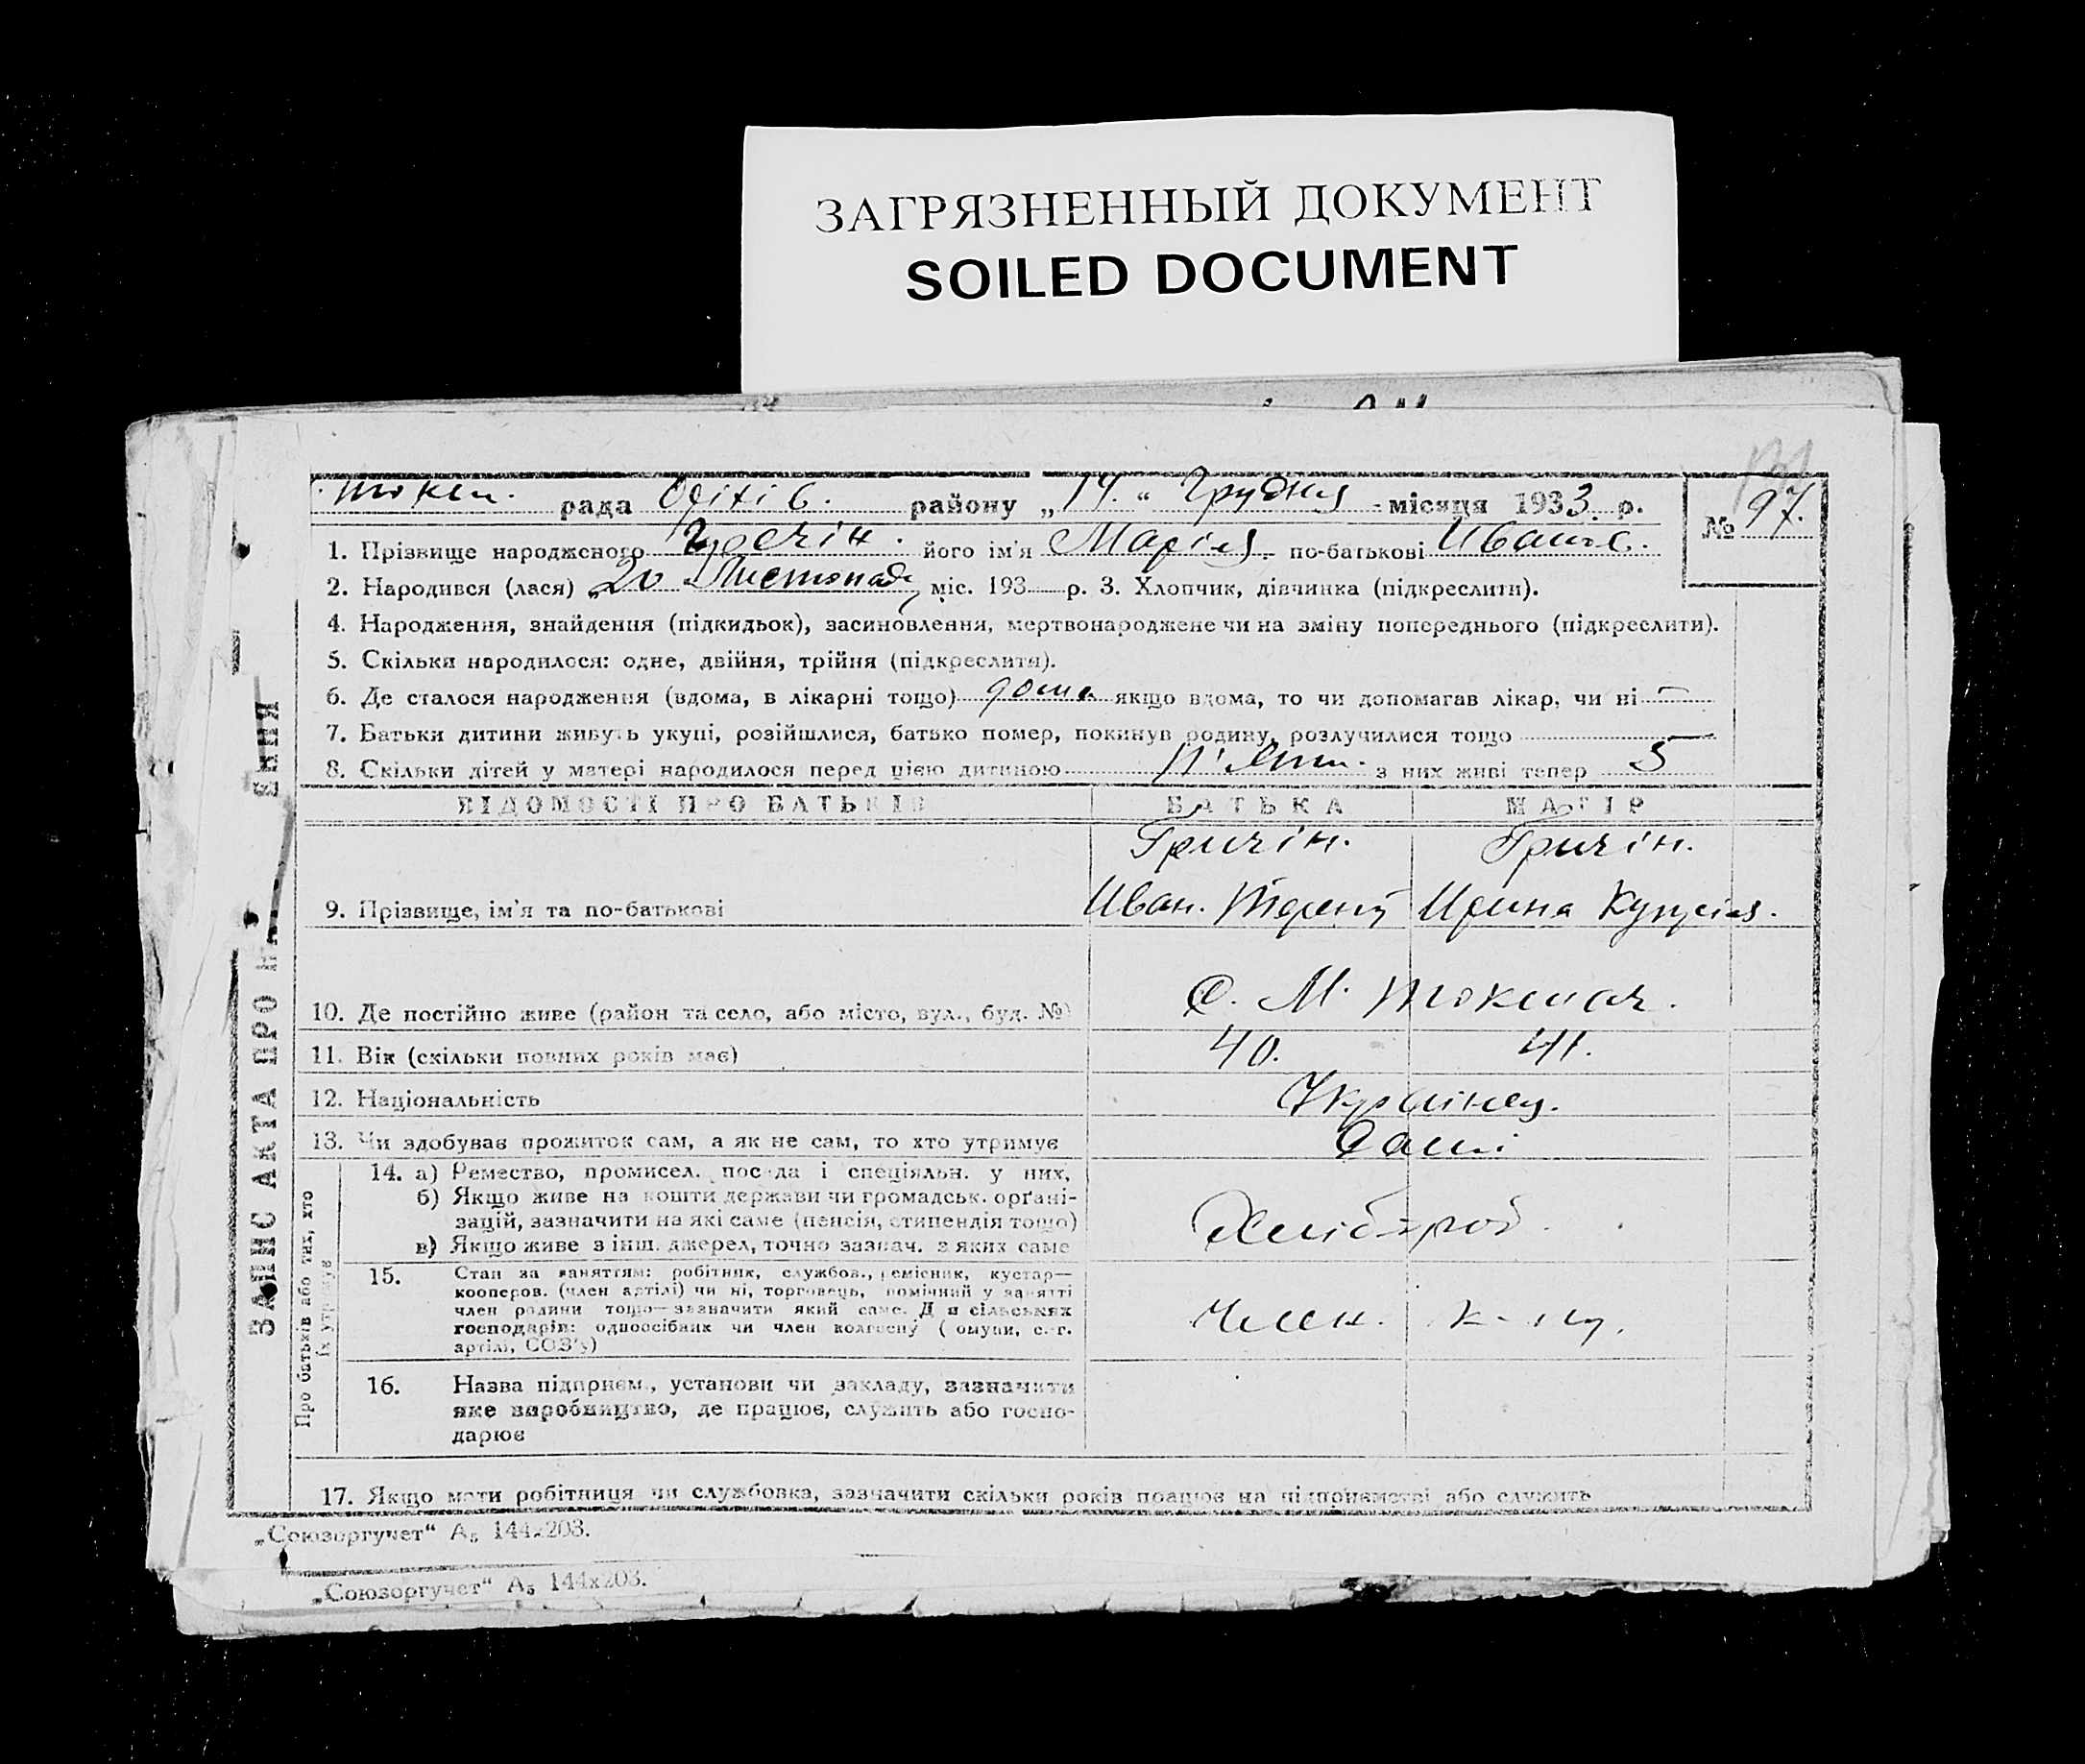 ЗАГРЯЗНЕННЫЙ ДОКУМЕНТ
SOILED DOCUMENT
Токм. рада Оріхів. району „14.“ Грудня місяця 1933 р.
№ 97.
1. Прізвище народженого його ім'я Марія по-батькові Иванов.
2. Народився (лася) „20 Листопада міс. 193 р. 3. Хлопчик, дівчинка (підкреслити).
4. Народження, знайдення (підкидьок), засиновлення, мертвонароджене чи на зміну попереднього (підкреслити).
5. Скільки народилося: одне, двійня, трійня (підкреслити).
6. Де сталося народження (вдома, в лікарні тощо) дома якщо вдома, то чи допомагав лікар, чи ні –
7. Батьки дитини живуть укупі, розійшлися, батько помер, покинув родину, розлучилися тощо
8. Скільки дітей у матері народилося перед цією дитиною п'ять. з них живі тепер 5
ВІДОМОСТІ ПРО БАТЬКІВ БАТЬКА МАТІР
Гричін. Гричін.
9. Прізвище, ім'я та по-батькові Иван. Терент Ирина
С. М. Токмач.
10. Де постійно живе (район та село, або місто, вул., буд. №)
11. Вік (скільки повних років має) 40. 41.
12. Національність Українец.
13. Чи здобуває прожиток сам, а як не сам, то хто утримує Самі
14. а) Ремество, промисел, посада і спеціяльн. у них,
б) Якщо живе на кошти держави чи громадськ. орґані-
зацій, зазначити на які саме (пенсія, стипендія тощо)
в) Якщо живе з інш. джерел, точно зазнач. з яких саме
Хлібороб.
15. Стан за заняттям: робітник, службов., ремісник, кустар—
кооперов. (член артілі) чи ні, торговець, помічний у занятті
член родини тощо—зазначити який саме. Для сільських
господарів: одноосібник чи член колгоспу (комуни, с.-г.
артілі, СОЗ'у)
Член.
16. Назва підприєм., установи чи закладу, зазначити
яке виробництво, де працює, служить або госпо-
дарює
17. Якщо мати робітниця чи службовка, зазначити скільки років працює на підприємстві або служить
ЗАПИС АКТА ПРО ЕННЯ
Про батьків або тих, хто
їх утримує
„Союзоргучет“ А₅ 144х203.
„Союзоргучет“ А₅ 144х203.